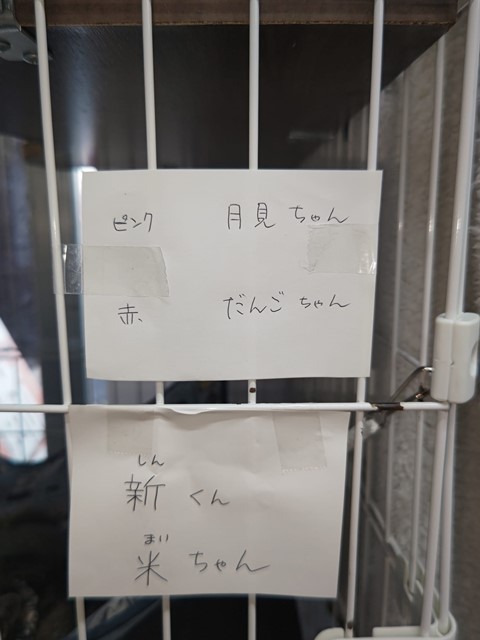 ピンク 月見ちゃん
赤、 だんごちゃん
しん
新くん
まい
米ちゃん